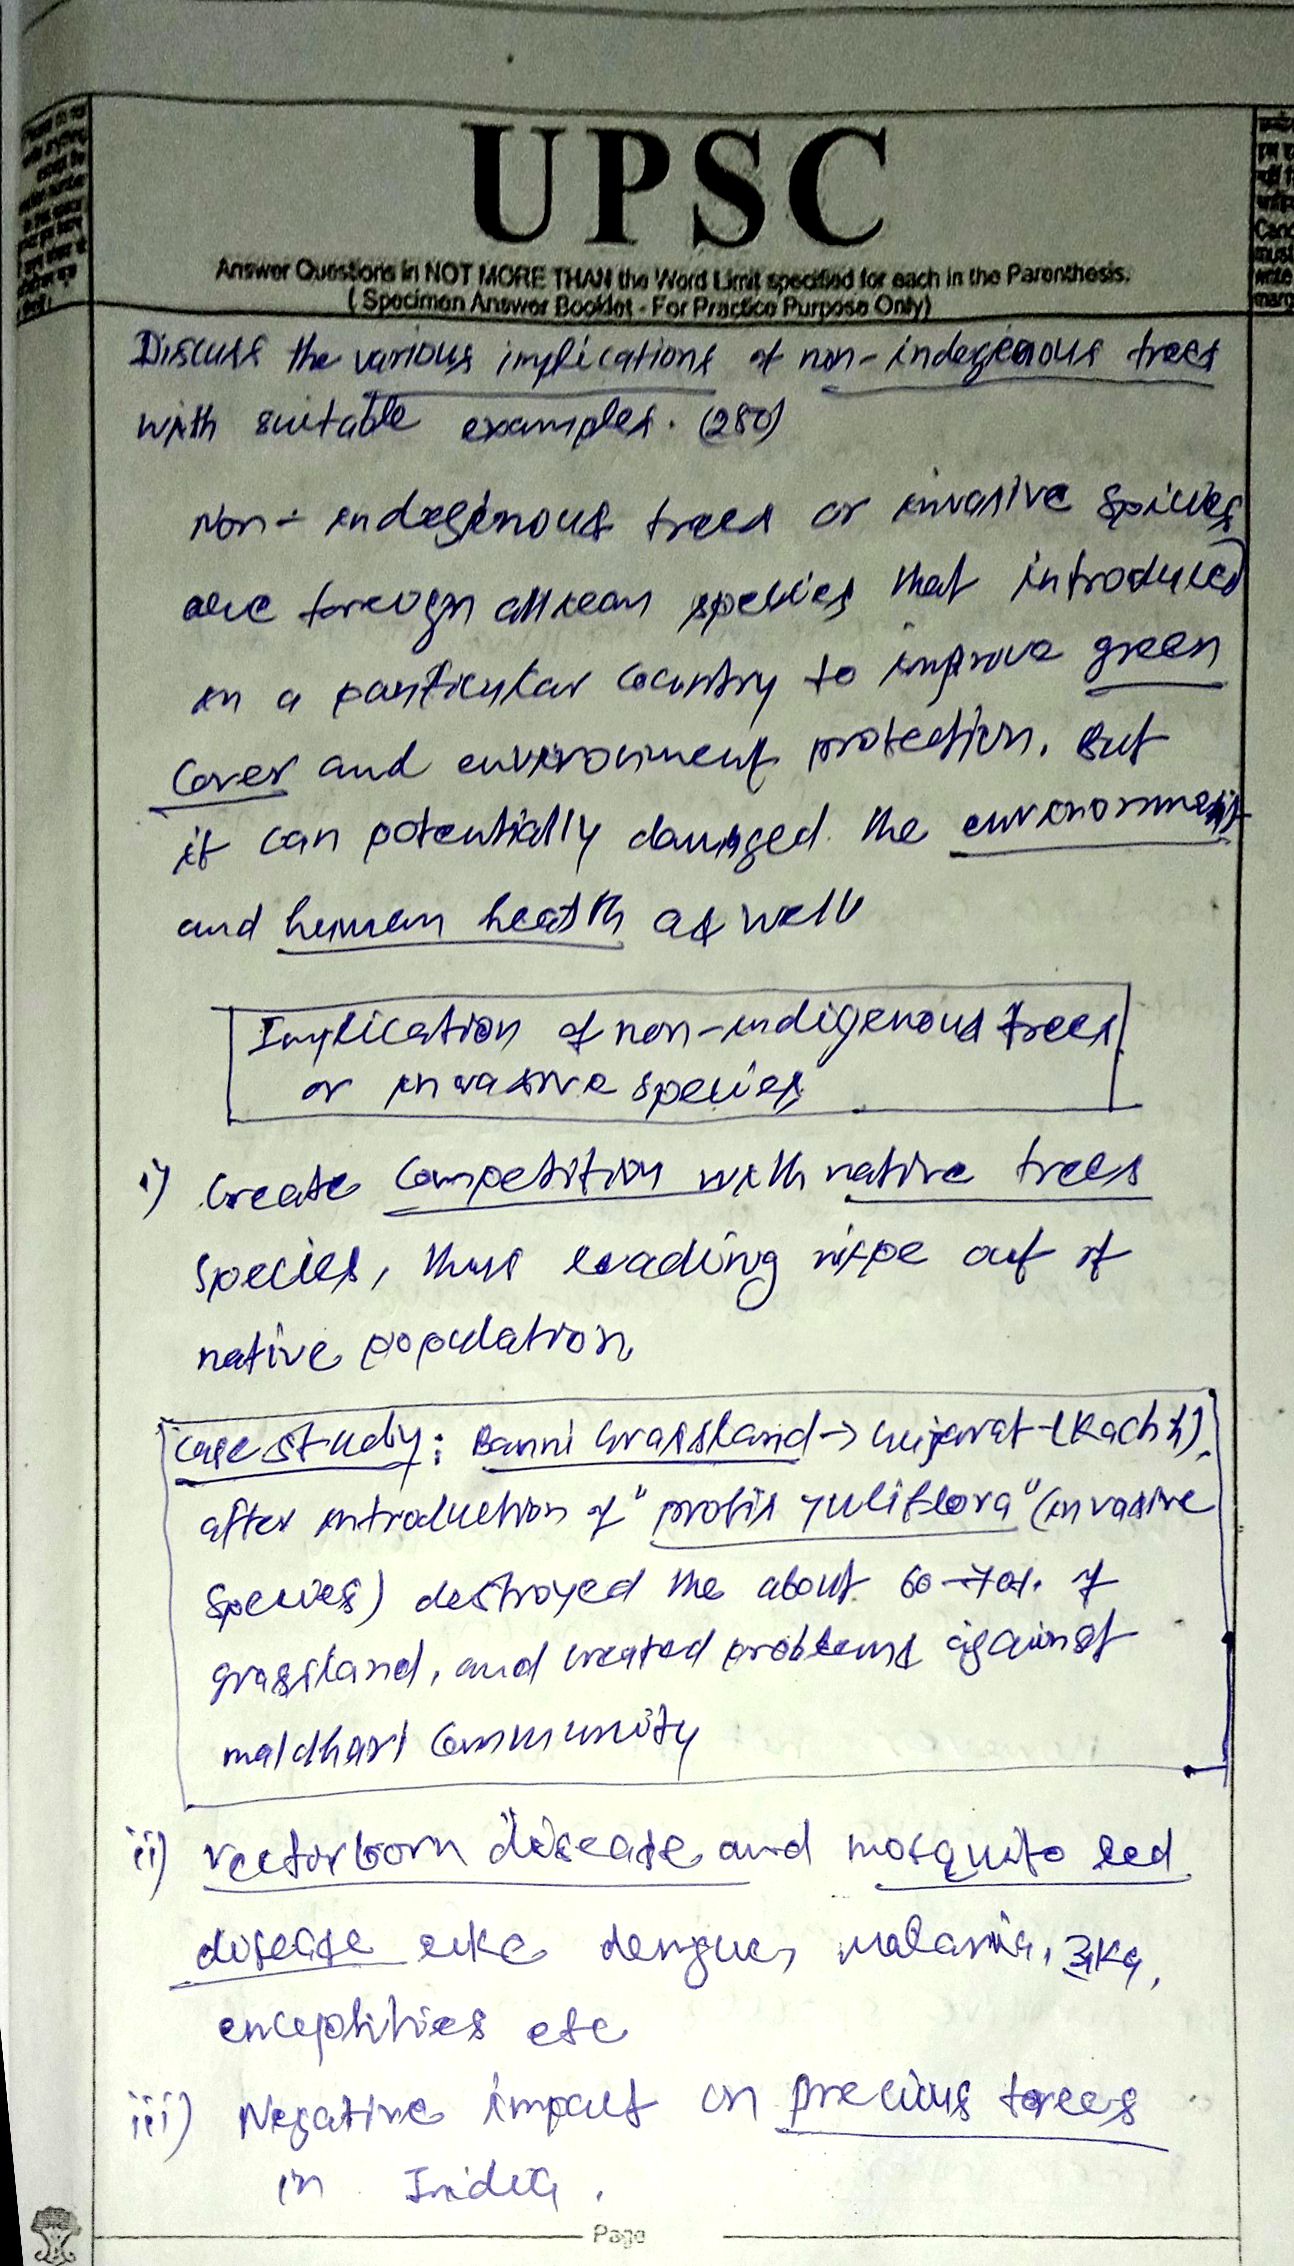 UPSC
Answer Questions in NOT MORE THAN the Word Limit specified for each in the Parenthesis.
( Specimen Answer Booklet - For Practice Purpose Only)
Discuss the various implications of non-indegenous trees
with suitable examples. (250)
Non-indegenous trees or invasive spicies
are foreign species that introduced
in a particular country to improve green
cover and environment protection. But
it can potentially damaged the environment
and human health as well
Implication of non-indigenous trees
or invasive species
i) Create competition with native trees
species, thus leading wipe out of
native population
Case study: Banni Grassland → Gujarat (Kachh).
after introduction of "profis Juliflora" (invasive
species) destroyed the about 60-70%. of
grassland, and created problems against
maldhari community
ii) vectorborn disease and mosquito led
disease like dengue, malaria, zika,
encephities etc
iii) Negative impact on precious trees
in India.
Page